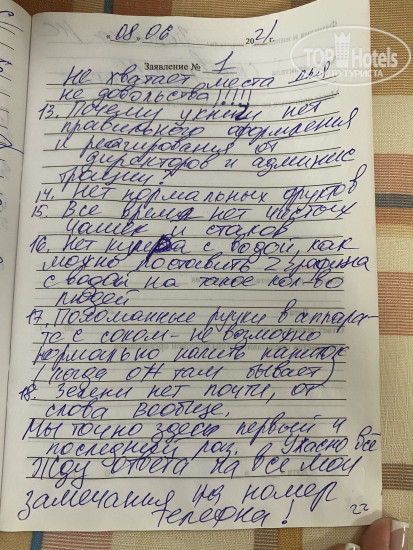 "08. 06 2021 г.
Заявление № 1
Не хватает места для
не довольства!!!!
13. Почему у книги нет
правильного оформления
и реагирования от
директоров и админис
трации?
14. Нет нормальных фруктов
15. Все время нет чистых
чашек и стаков
16. Нет кулера с водой, как
можно поставить 2 графина
с водой на такое кол-во
людей
17. Подоманные ручки в аппара-
те с соком - не возможно
нормально налить напиток
(когда он там бывает)
18. Зелени нет почти, от
слова вообще.
Мы точно здесь первый и
последний раз. Ужасно всё
Жду ответа на все мои
замечания на номер
телефна!
22
TopHotels